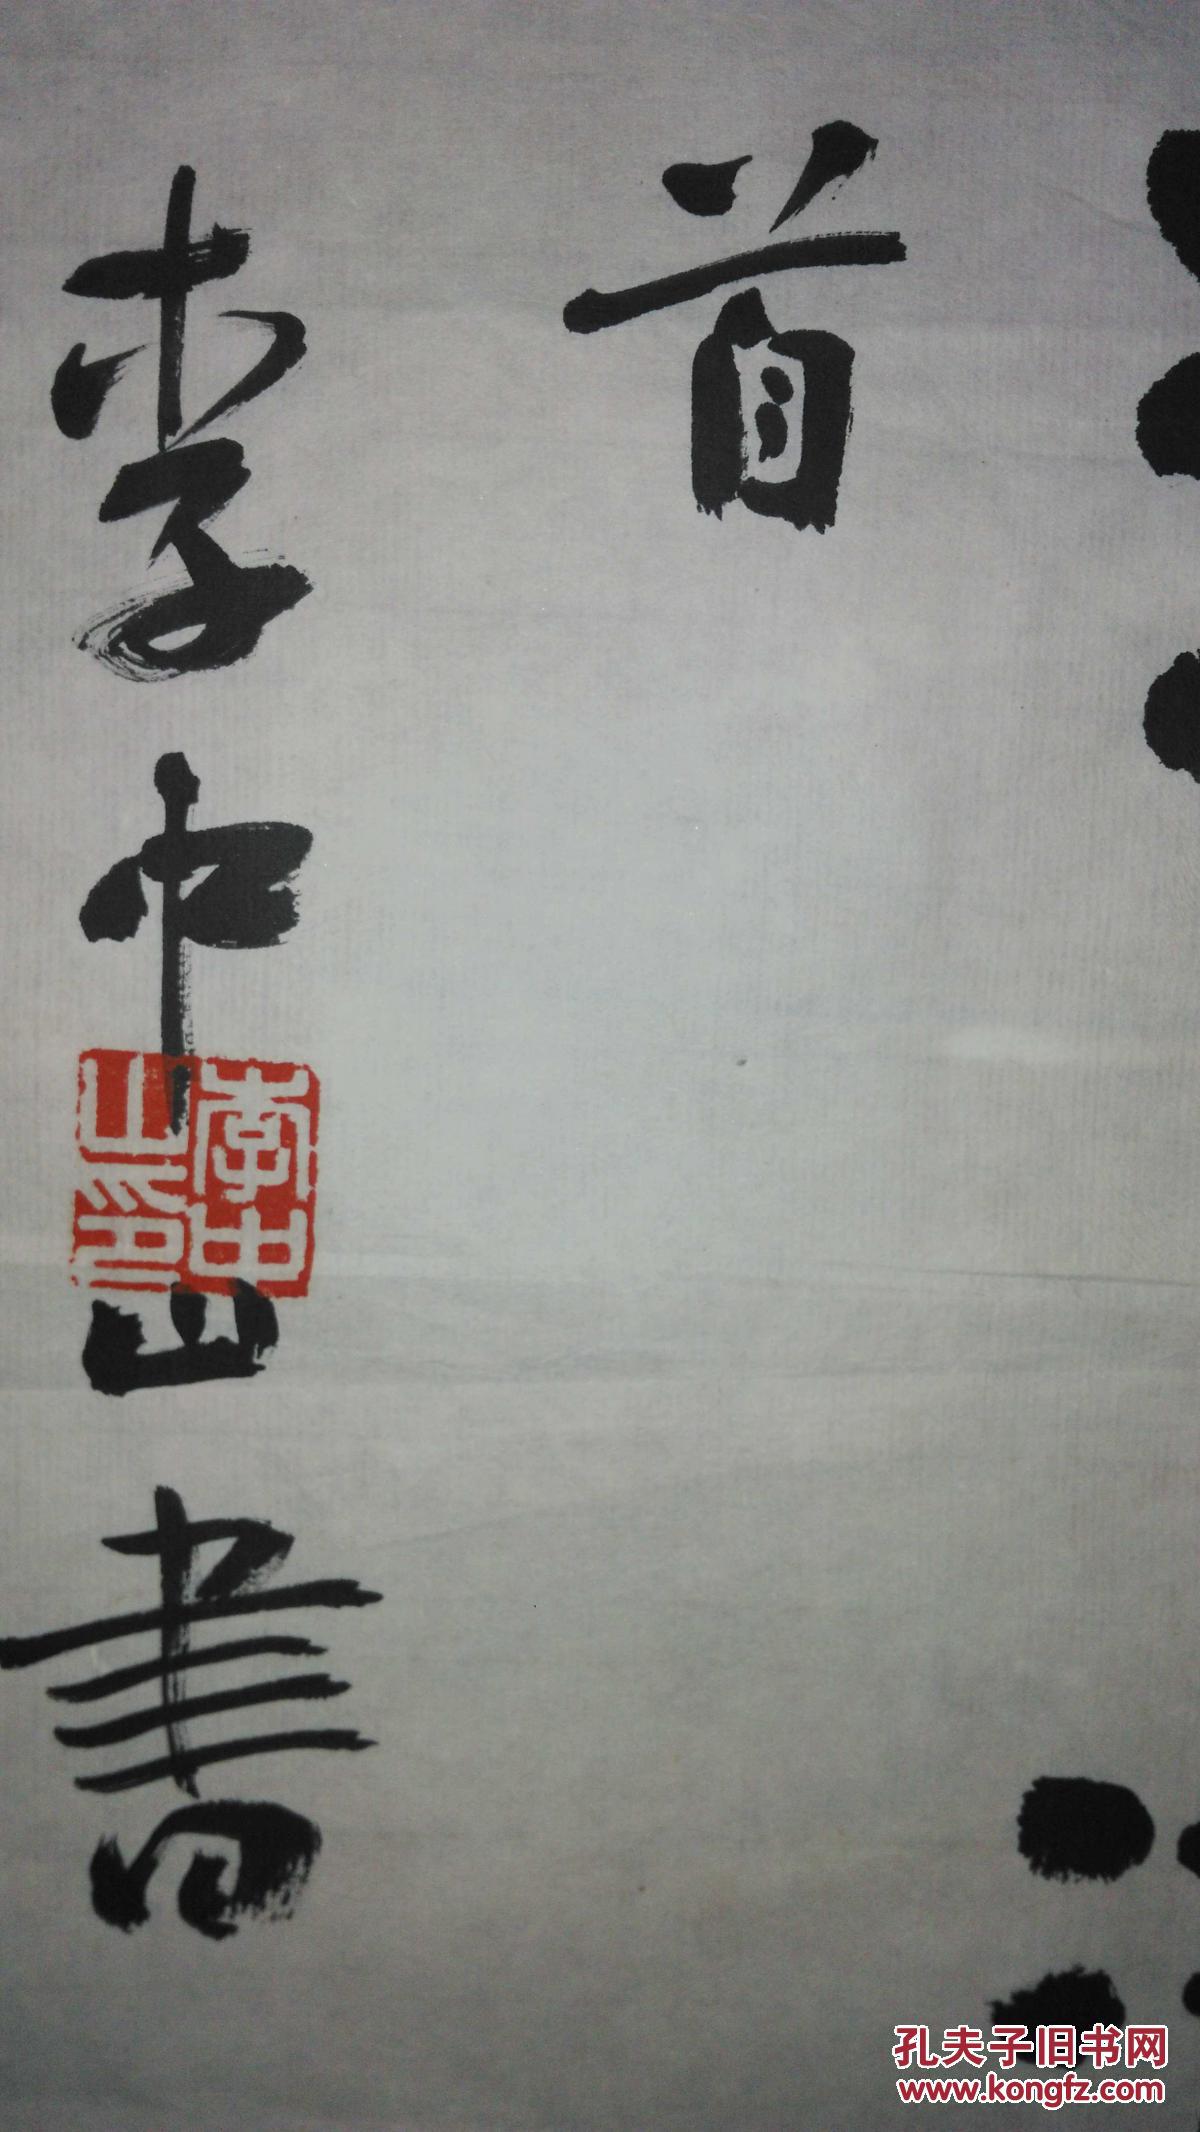 首
李中山書
李中
山印
孔夫子旧书网
www.kongfz.com